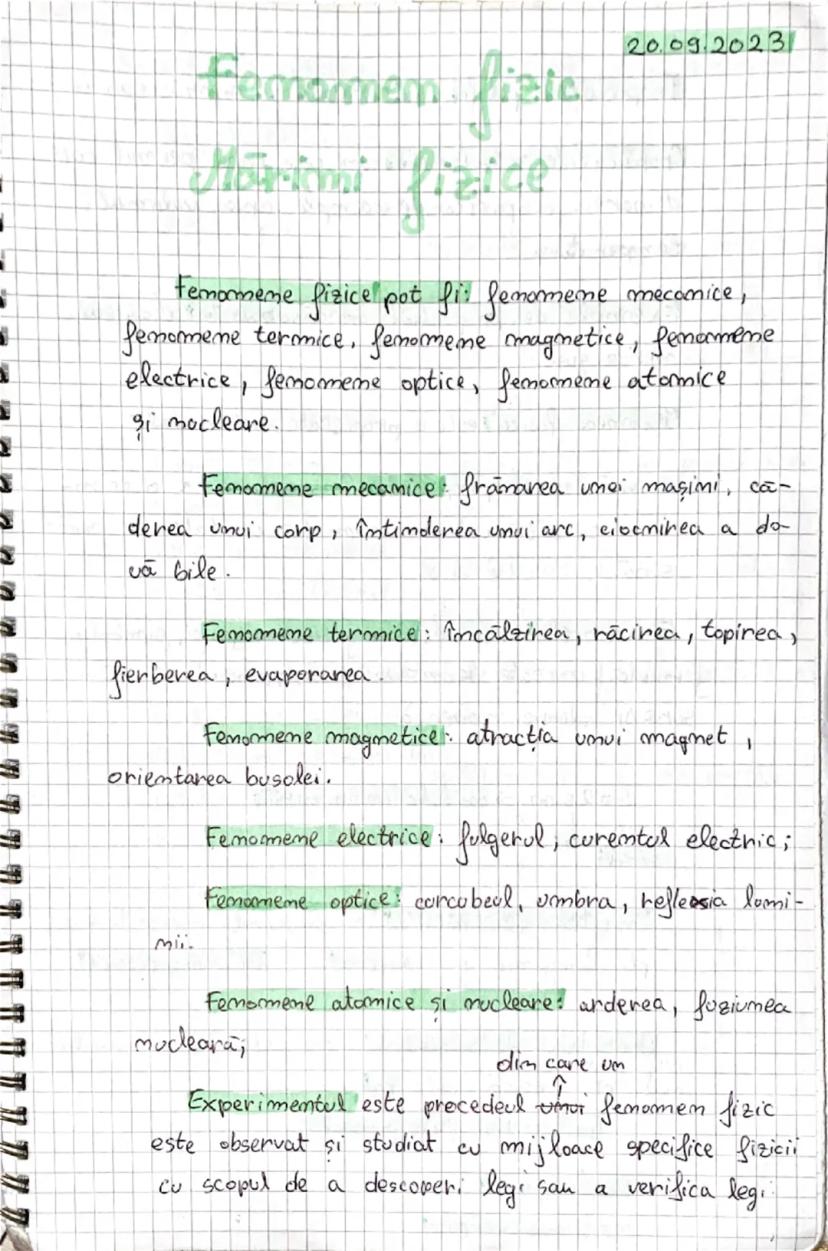 20.09.2023
Fenomen fizic
Mărimi fizice
Fenomene fizice pot fi: fenomene mecanice,
fenomene termice, fenomene magnetice, fenomene
electrice, fenomene optice, fenomene atomice
și nucleare.
Fenomene mecanice: frânarea unei mașini, că-
derea unui corp, întinderea unui arc, ciocnirea a do-
uă bile.
Fenomene termice: încălzirea, răcirea, topirea,
fierberea, evaporarea.
Fenomene magnetice: atracția unui magnet,
orientarea busolei.
Fenomene electrice: fulgerul, curentul electric;
Fenomene optice: curcubeul, umbra, reflexia lumi-
nii.
Fenomene atomice și nucleare: arderea, fuziunea
nucleară;
din care un
Experimentul este precedeul unui fenomen fizic
este observat și studiat cu mijloace specifice fizicii
cu scopul de a descoperi legi sau a verifica legi